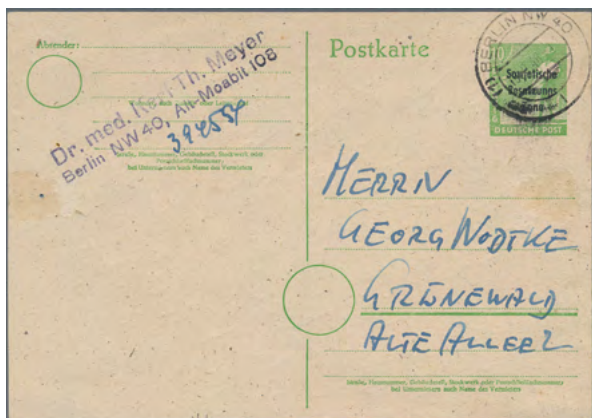 Absender:
Dr. med. Karl Th. Meyer
Berlin NW 40, Alt-Moabit 108
394554
Wohnort, auch Zustell- oder Leitpostamt
Straße, Hausnummer, Gebäudeteil, Stockwerk oder
Postschließfachnummer;
bei Untermietern auch Name des Vermieters
Postkarte
BERLIN NW 40
Sowjetische
Besatzungs
Zone
DEUTSCHE POST
HERRN
GEORG WODTKE
GRUNEWALD
ALTE ALLEE 2
Straße, Hausnummer, Gebäudeteil, Stockwerk oder Postschließfachnummer
bei Untermietern auch Name des Vermieters